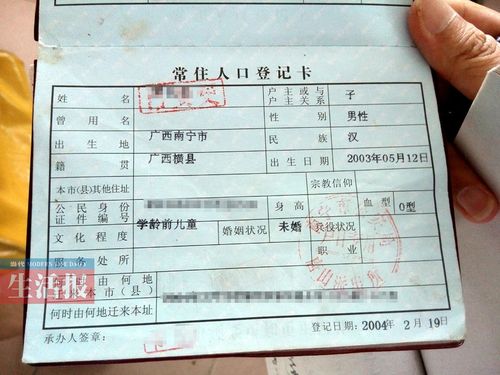 常住人口登记卡
姓 名 户主或与户主关系 子
曾用名 性别 男性
出生地 广西南宁市 民族 汉
籍贯 广西横县 出生日期 2003年05月12日
本市(县)其他住址 宗教信仰
公民身份证件编号 身高 血型 O型
文化程度 学龄前儿童 婚姻状况 未婚 兵役状况
务处所 职业
由何地
本市(县)
何时由何地迁来本址
承办人签章: 登记日期: 2004年2月19日
当代 MODERN LIFE DAILY
生活报